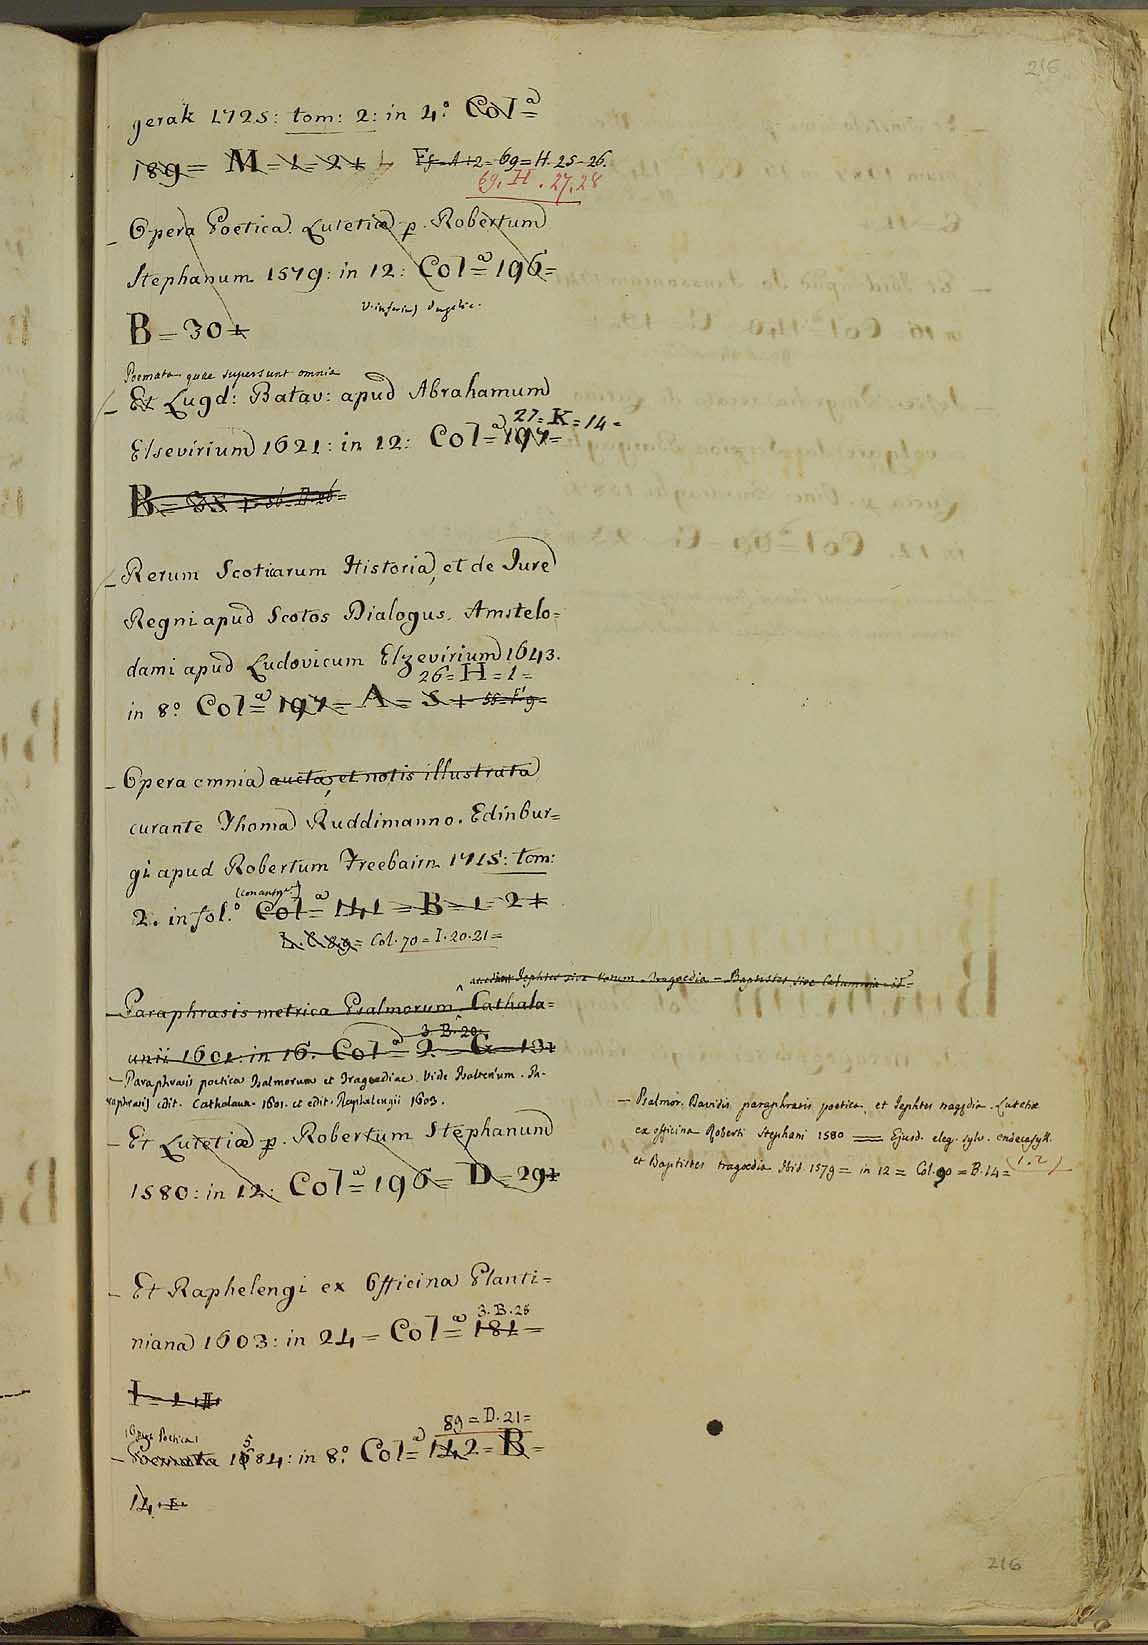 216
gerak 1725: tom: 2: in 4.º Colª=
189= M=1=2+ 69=H.25-26.
69. H. 27.28
– Opera Poetica. Lutetiæ p. Robertum
Stephanum 1579: in 12: Colª=196=
B=30+
Poemata quae supersunt omnia
– Et Lugd: Batav: apud Abrahamum
27=K=14=
Elsevirium 1621: in 12: Colª=197=
B=35+
– Rerum Scoticarum Historia, et de Jure
Regni apud Scotos Dialogus. Amstelo=
dami apud Ludovicum Elzevirium 1643.
26=H=1=
in 8.º Colª=197=A=5+
– Opera omnia aucta, et notis illustrata
curante Thoma Ruddimanno. Edinbur=
gi apud Robertum Freebairn 1715: tom:
2. in fol.º Colª=141=B=1=2+
Col. 70=I.20.21=
accedunt Jephtes sive Votum. Tragaedia – Baptistes, sive Calumnia
– Paraphrasis metrica Psalmorum. Cathala=
3.B.20
unii 1601: in 16. Colª=2.=G=13+
– Paraphrasis poetica Psalmorum et Tragaediae. Vide Psalterium. Pa-
raphrasis edit. Cathalaun. 1601. et edit. Raphalengii 1603.
– Et Lutetiæ p. Robertum Stephanum
1580: in 12: Colª=196=D=29+
– Psalmor. Davidis paraphrasis poetica, et Jephtes tragædia. Lutetiæ
ex officina Roberti Stephani 1580 = Ejusd. eleg. sylv. endecasyll.
et Baptistes tragædia Ibid. 1579= in 12= Col. 90=B.14=
1.2
– Et Raphelengi ex Officina Planti=
3.B.26
niana 1603: in 24= Colª=181=
I=1
89=D.21=
Opera Poetica
– Poemata 1584: in 8.º Colª=142=B=
14+
216